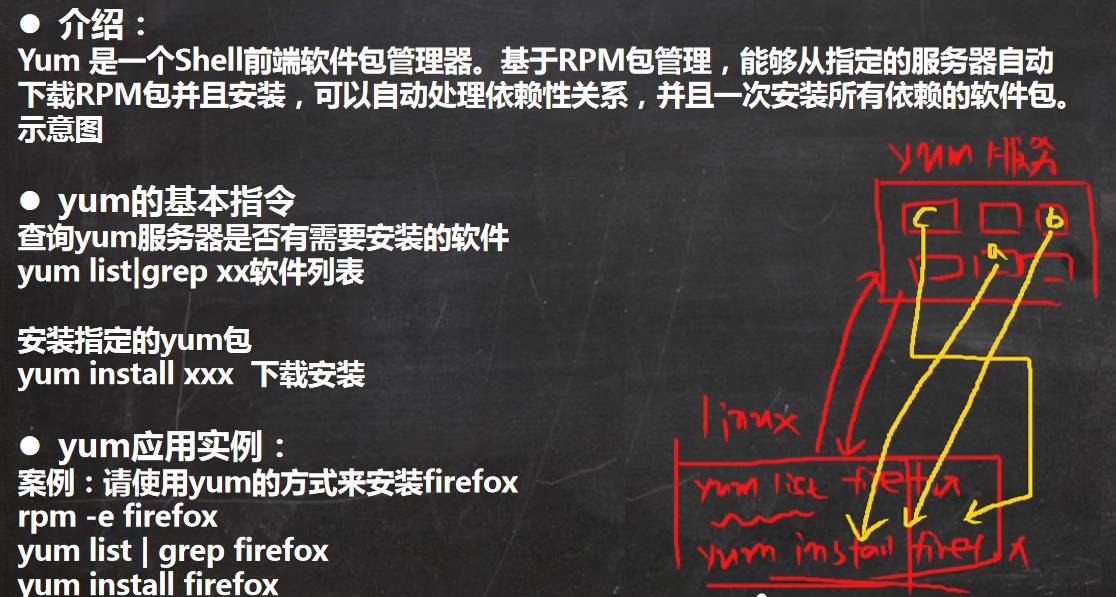 ● 介绍：
Yum 是一个Shell前端软件包管理器。基于RPM包管理，能够从指定的服务器自动
下载RPM包并且安装，可以自动处理依赖性关系，并且一次安装所有依赖的软件包。
示意图
● yum的基本指令
查询yum服务器是否有需要安装的软件
yum list|grep xx软件列表
安装指定的yum包
yum install xxx 下载安装
● yum应用实例：
案例：请使用yum的方式来安装firefox
rpm -e firefox
yum list | grep firefox
yum install firefox
yum 服务
C
b
a
linux
yum list firefox
yum install firefox